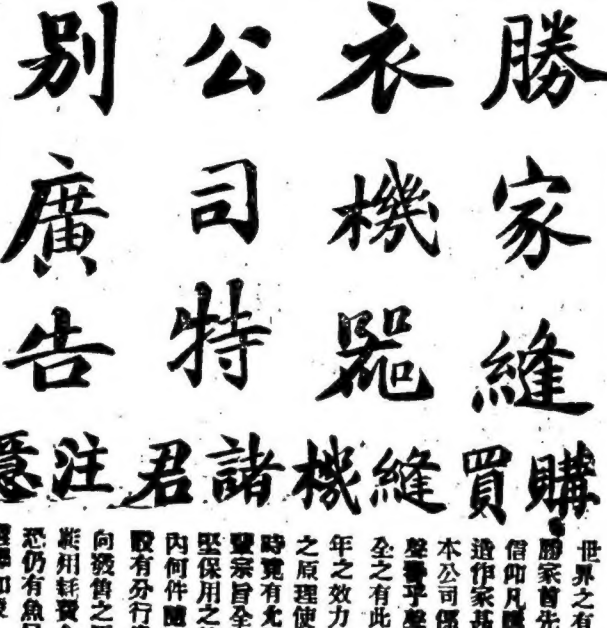 勝家縫
衣機器
公司特
別廣告
購買縫機諸君注意
世界之有
勝家首先
信仰凡
造作家甚
本公司係
聲譽乎
全之有此
年之效力
之原理使
時竟有
宗旨全
堅保用之
內何件隨
設有分行
向發售之
耗費
恐仍有魚